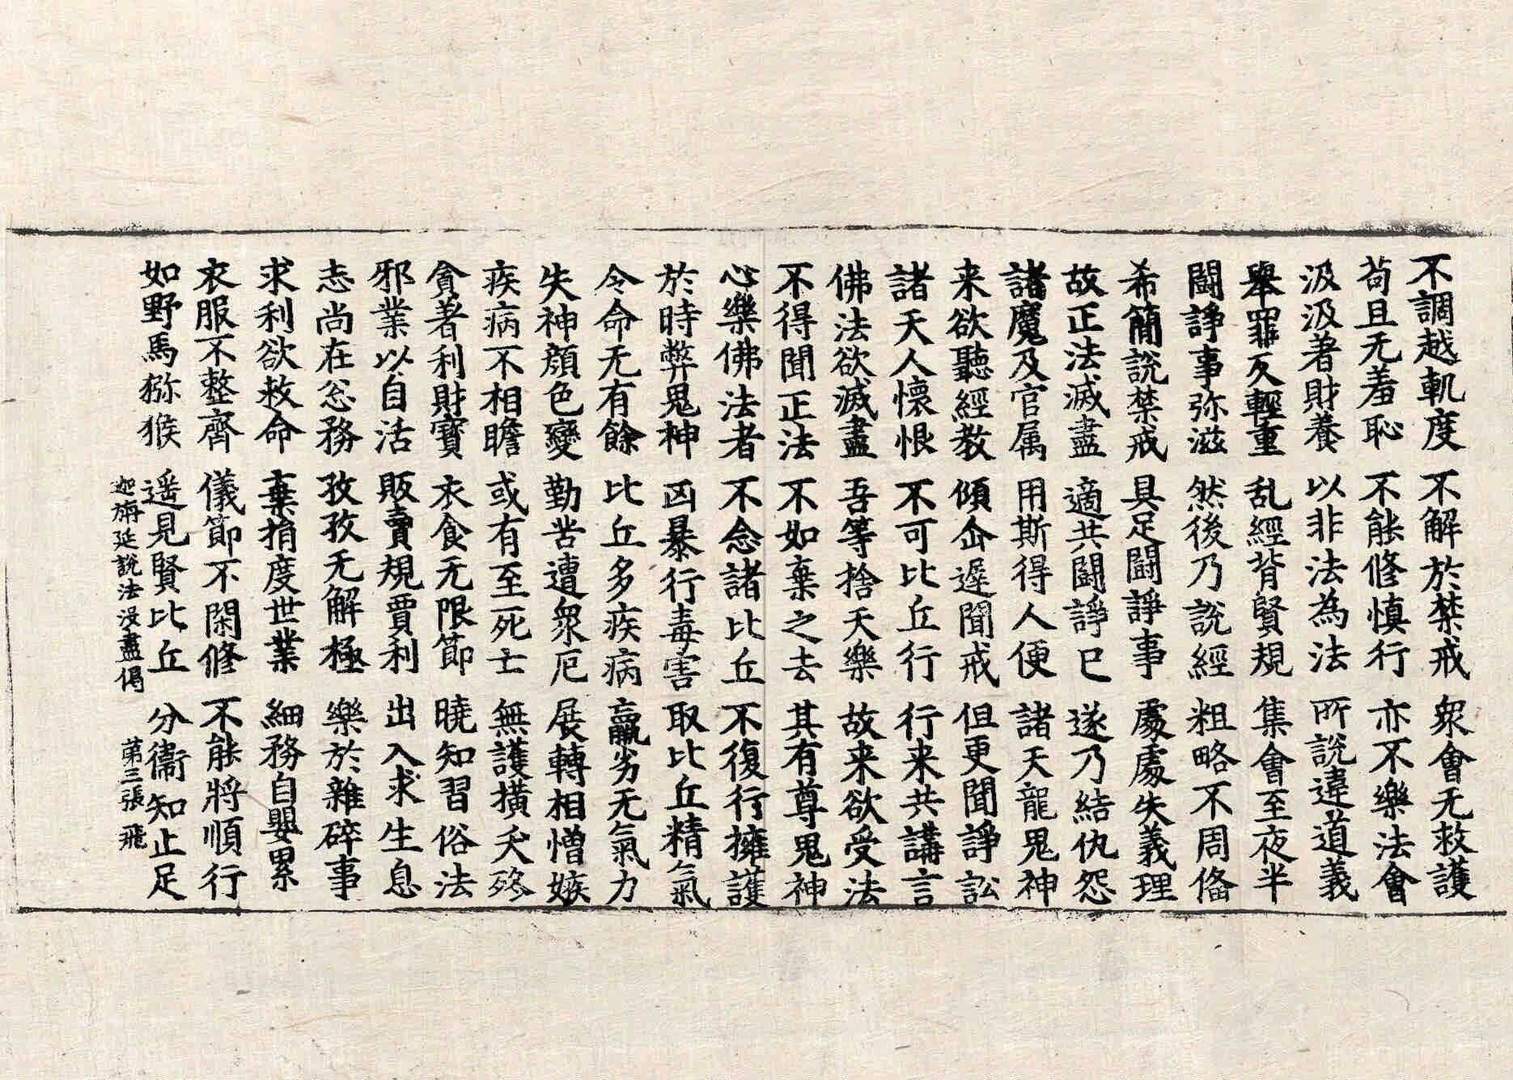 不調越軌度 不解於禁戒 衆會无救護
苟且无羞恥 不能修慎行 亦不樂法會
汲汲著財養 以非法為法 所說違道義
舉罪及輕重 乱經背賢規 集會至夜半
鬪諍事弥滋 然後乃說經 粗略不周俻
希簡說禁戒 具足鬪諍事 處處失義理
故正法滅盡 適共鬪諍已 遂乃結仇怨
諸魔及官属 用斯得人便 諸天龍鬼神
来欲聽經教 傾企遲聞戒 但更聞諍訟
諸天人懷恨 不可比丘行 行来共講言
佛法欲滅盡 吾等捨天樂 故来欲受法
不得聞正法 不如棄之去 其有尊鬼神
心樂佛法者 不念諸比丘 不復行擁護
於時弊鬼神 凶暴行毒害 取比丘精氣
令命无有餘 比丘多疾病 羸劣无氣力
失神顏色變 勤苦遭衆厄 展轉相憎嫉
疾病不相瞻 或有至死士 無護橫夭歿
貪著利財寶 衣食无限節 曉知習俗法
邪業以自活 販賣規賈利 出入求生息
志尚在忿務 孜孜无解極 樂於雜碎事
求利欲救命 棄捐度世業 細務自嬰累
衣服不整齊 儀節不閑修 不能將順行
如野馬猕猴 遥見賢比丘 分衞知止足
迦旃延說法没盡偈 第三張 飛